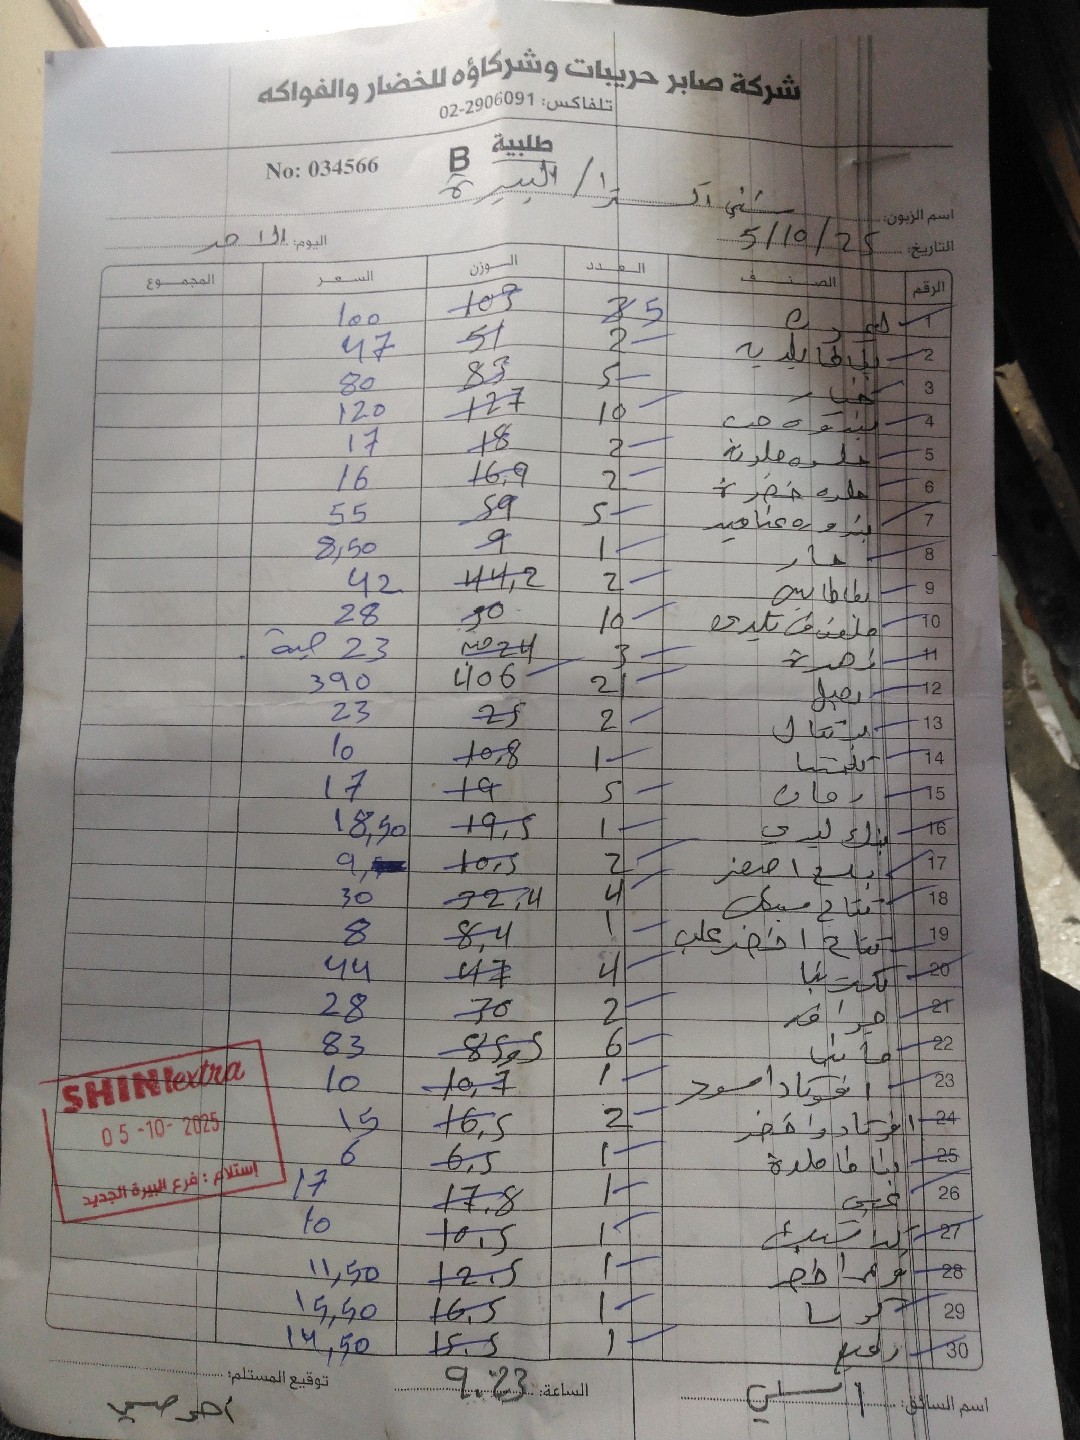 شركة صابر حريبات وشركاؤه للخضار والفواكه
تلفاكس: 02-2906091
طلبية B No: 034566
اسم الزبون: شني اكسترا / البيرة
التاريخ: 5/10/25 اليوم: الاحد
الرقم الصنف العدد الوزن السعر المجموع
1 5 103 100
2 2 51 47
3 خيار 5 83 80
4 بندوره حب 10 127 120
5 حلوه ملونة 2 18 17
6 حلوه خضرة 2 16,9 16
7 بندوره عناقيد 5 59 55
8 حار 1 9 8,50
9 بطاطا 2 44,2 42
10 ملفوف 10 30 28
11 زهرة 3 24 23 حبة
12 بصل 21 406 390
13 برتقال 2 25 23
14 كلمنتينا 1 10,8 10
15 رمان 5 19 17
16 بنك ليدي 1 19,5 18,50
17 بلح اصفر 2 10,5 9,
18 تفاح 4 32,4 30
19 تفاح اخضر علب 1 8,4 8
20 4 47 44
21 جوافه 2 30 28
22 مانجا 6 85,5 83
23 افوكادو اسود 1 10,7 10
24 افوكادو اخضر 2 16,5 15
25 1 6,5 6
26 1 17,8 17
27 1 10,5 10
28 1 12,5 11,50
29 1 16,5 15,50
30 1 15,5 14,50
SHINI extra
05-10-2025
إستلام : فرع البيرة الجديد
اسم السائق: الساعة: 9:23 توقيع المستلم: